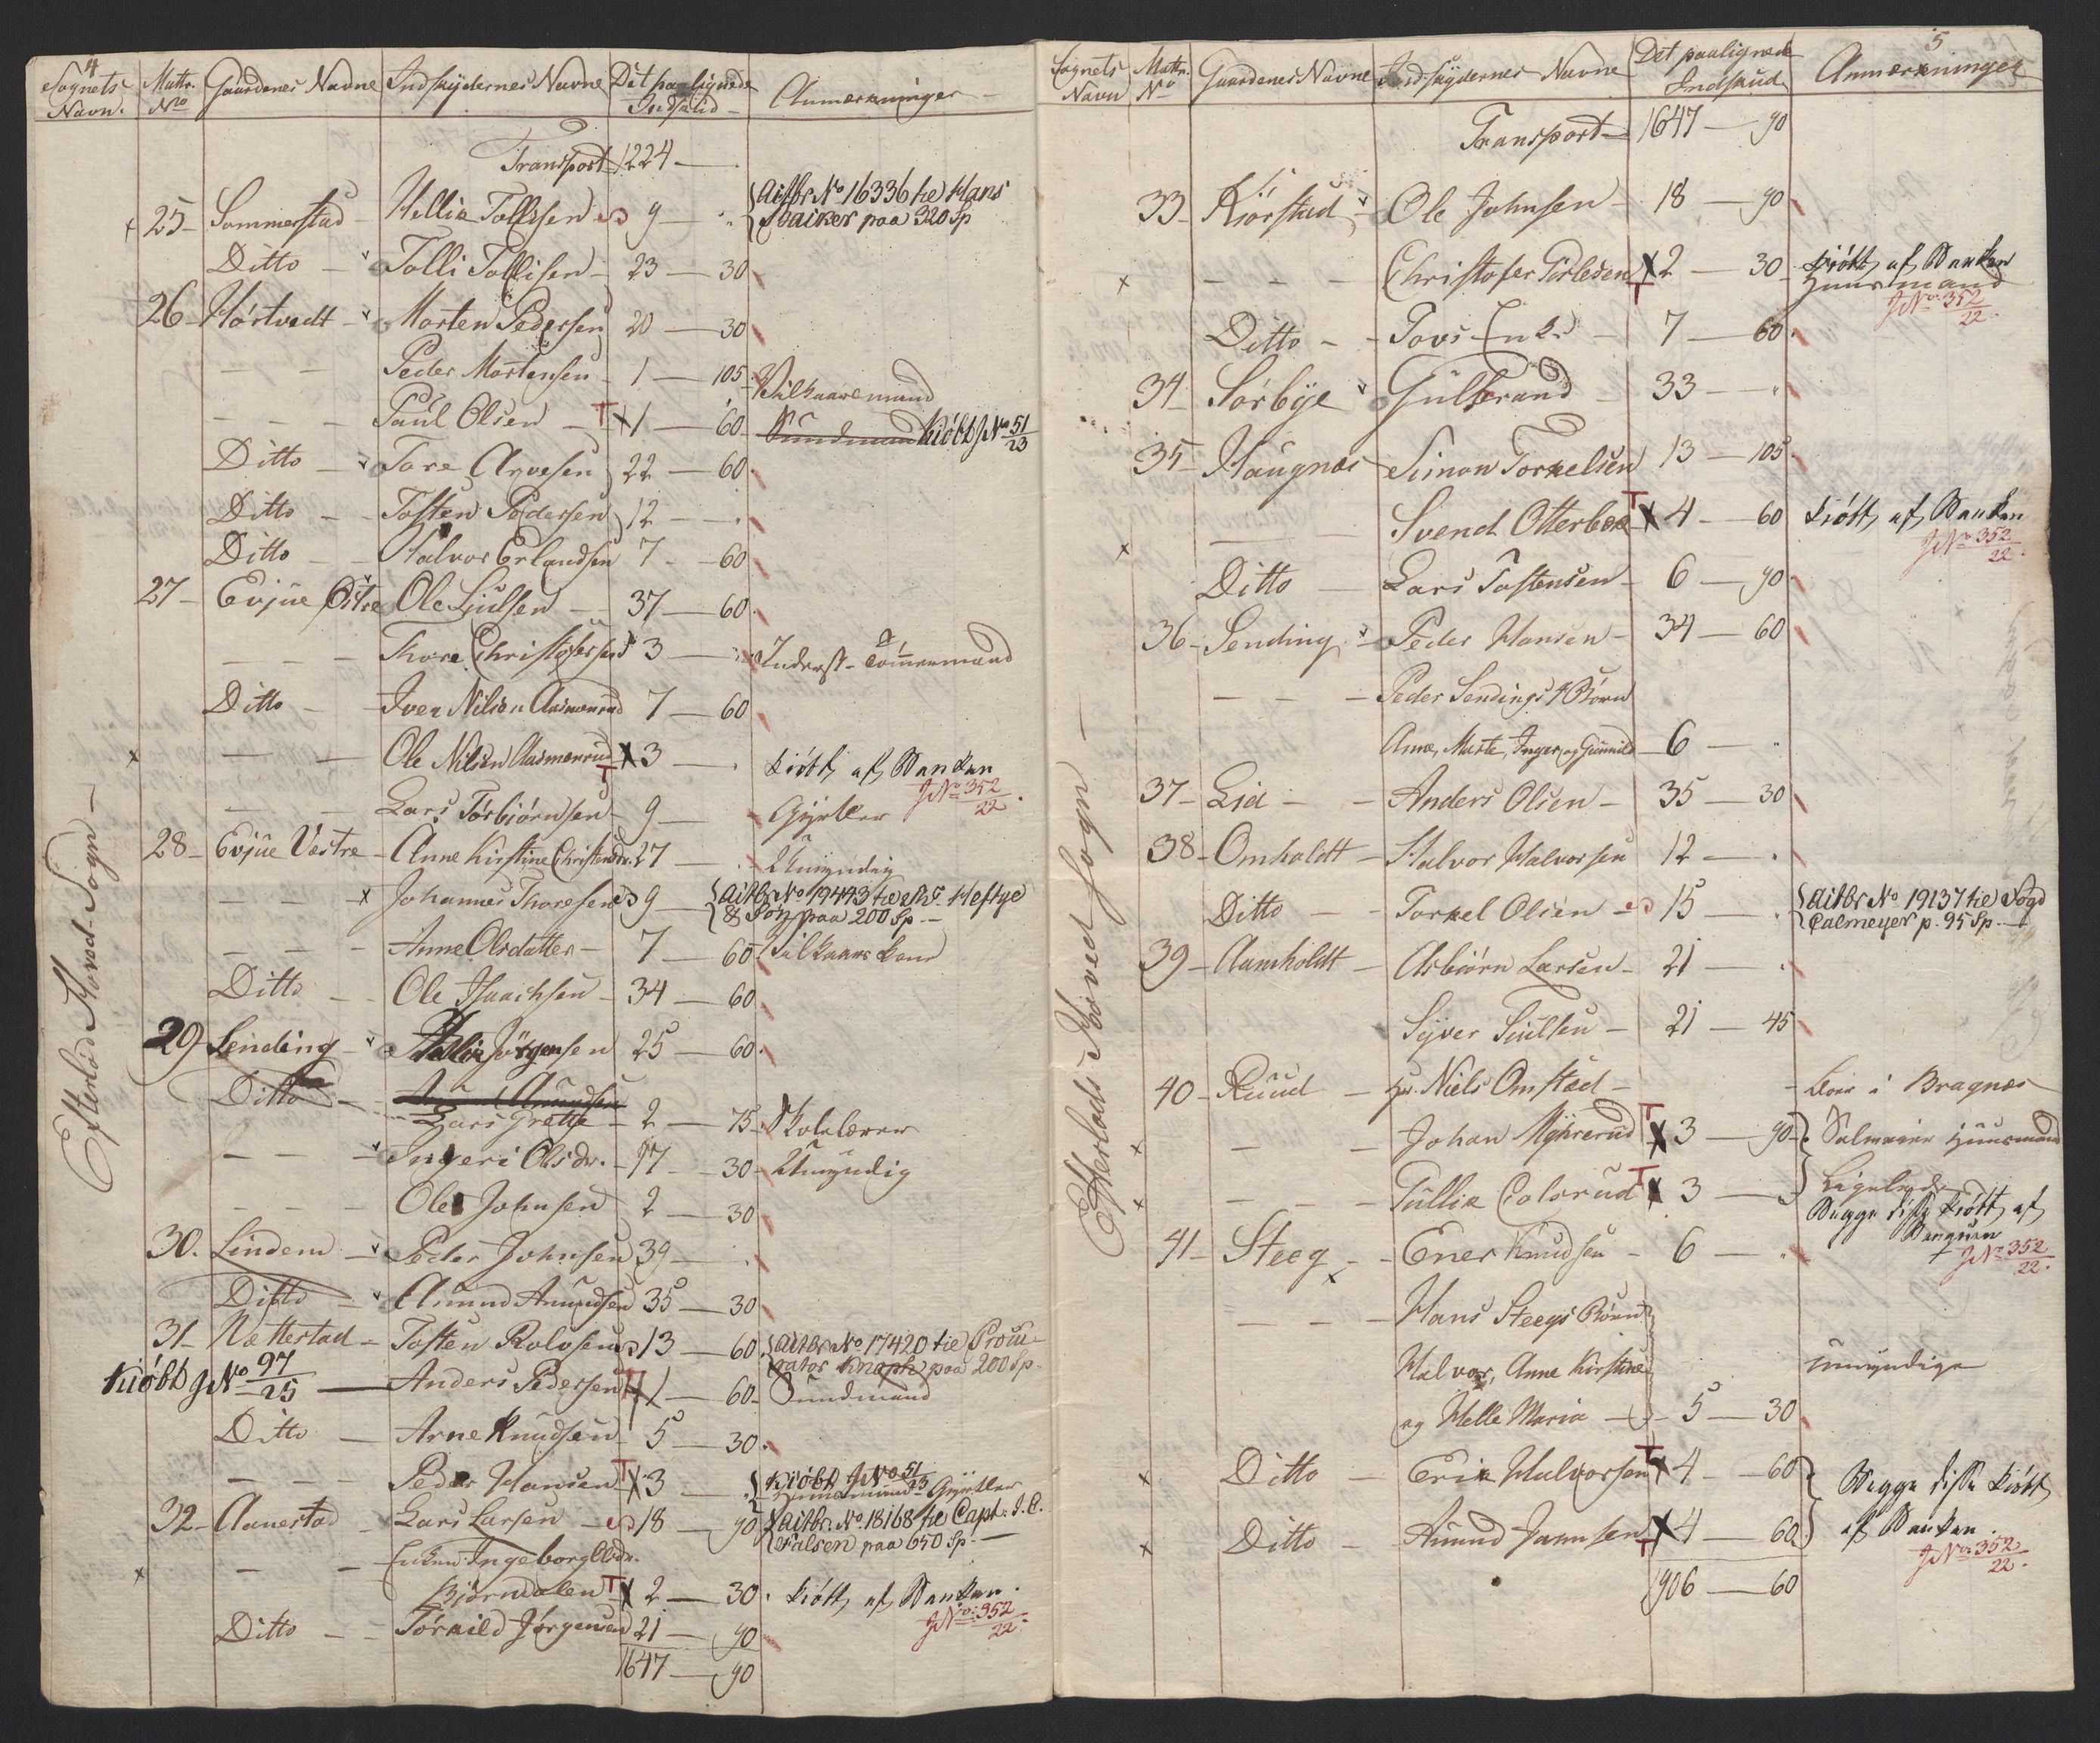 4
Sognets Navn. Matr. No Gaardenes Navne Indskydernes Navne Det paalignede Indskud Anmærkninger
Transport 1224 —
25 Sommerstad Hellie Tollefsen 9 — Aitbr No 16336 til Hans
Baiker paa 320 Sp
Ditto Tolli Tollisen 23 — 30
26 Hørtvedt Morten Pedersen 20 — 30
— — Peder Mortensen 1 — 105 Vilkaarsmand
— — Paul Olsen T 1 — 60 Kiøbt JNo 51/23
Ditto Tore Arvesen 22 — 60
Ditto Tosten Pedersen 12 —
Ditto Halvor Erlandsen 7 — 60
27 Evjue Østre Ole Liulsen 37 — 60
— — — Thore Christofersen 3 — Inderst Tømmermand
Ditto Iver Nilsen Aasmenrud 7 — 60
x — — Ole Nilsen Aasmenrud T 3 — kiøbt af Banken
JNo 352/22
— — Lars Torbiørnsen 9 — Gjørtler
28 Evjue Væstre Anne Kirstine Christensdr. 27 — Umyndig
— — x Johannes Thoresen 9 — Aitbr No 19443 til Th. Heftye
& Søn paa 200 Sp. —
— — — Anne Olsdatter 7 — 60 Vilkaars kone
Ditto Ole Isaachsen 34 — 60
29 Lending Hellie Jørgensen 25 — 60
Ditto Amund Amundsen
Lars Grette 2 — 75 Skolelærer
— — — Ingeri Olsdr. 97 — 30 Umyndig
— — — Ole Johnsen 2 — 30
30. Lindem Peder Johnsen 39 —
Ditto Amund Amundsen 35 — 30
31 Nættestad Tosten Rolvsen 13 — 60 Aitbr No 17420 til Procu-
rator Knaph paa 200 Sp.
Kiøbt JNo 97/25 — Anders Pedersen T 1 — 60 Sundmand
Ditto Arne Knudsen 5 — 30
— — — Peder Hansen T 3 — Kiøbt JNo 51/23
Huusmand Gjørtler
32 Aanestad Lars Larsen 18 — 90 Aitbr. No 18168 til Capt. I. C.
Falsen paa 650 Sp. —
x — — Enken Ingeborg Olsdr.
Biørndalen T 2 — 30 kiøbt af Banken
JNo 352/22
Ditto Torkild Jørgensen 21 — 90
1647 — 90
Efterløds Hoved-Sogn —
5
Sognets Navn Matr. No Gaardenes Navne Indskydernes Navne Det paalignede Indskud Anmærkninger
Transport 1647 — 90
33 Kiørstad Ole Johnsen 18 — 90
x — — — Christofer T 2 — 30 kiøbt af Banken
Huusmand
JNo 352/22
Ditto Tovs Enke 7 — 60
34 Sørbye Gulbrand 33 —
35 Haugnæs Simon Torkelsen 13 — 105
x — Svend Otterbek T 4 — 60 kiøbt af Banken
JNo 352/22
Ditto Lars Tostensen 6 — 90
36 Sending Peder Hansen 34 — 60
— — — Peder Sendings 4 Børn
Anne, Marte, Inger og Gunnild 6 —
37 Lid Anders Olsen 35 — 30
38 Omholdt Halvor Halvorsen 12 —
Ditto Torkel Olsen 15 — Aitbr No 19137 til Fogd
Calmeyer p. 95 Sp. —
39 Aamholdt Asbiørn Larsen 21 —
Syver Tiulsen 21 — 45
40 Ruud Hr. Niels Omstad — Boer i Bragnæs
x — — Johan Myhrerud T 3 — 90 Huusmand
x — — — Tullik Colsrud T 3 — Ligeledes
Begge disse kiøbt af
Banquen
JNo 352/22
41 Steeg Ener Knudsen 6 —
— — — Hans Steegs Børn
Halvor, Anne Kirstine umyndige
og Helle Maria 5 — 30
x Ditto Erik Halvorsen T 4 — 60 Begge disse kiøbt
x Ditto Amund Jamsen T 4 — 60 af Banken.
JNo 352/22
1906 — 60
Efterløds Hoved sogn —